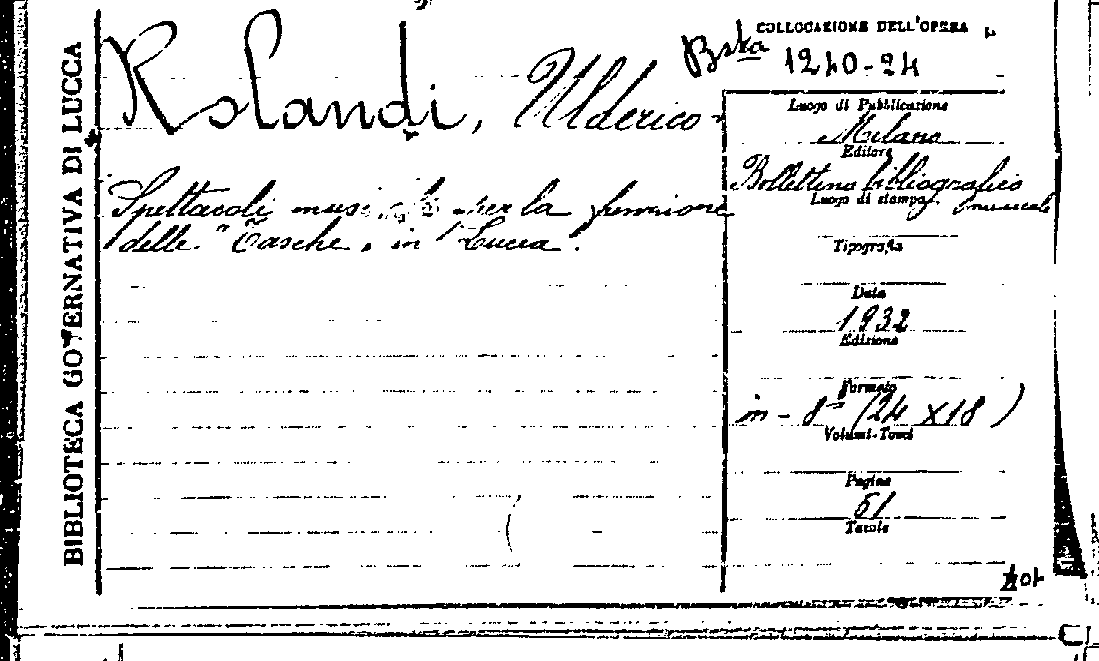 BIBLIOTECA GOVERNATIVA DI LUCCA
Rolandi, Ulderico
Spettacoli musicali per la funzione
delle "Tasche" in "Lucca".
COLLOCAZIONE DELL'OPERA
Bsta 1240-24
Luogo di Pubblicazione
Milano
Editore
Bollettino bibliografico
musicale
Luogo di stampa
Tipografia
Data
1932
Edizione
Formato
in-8° (24 x 18)
Volumi-Tomi
Pagine
51
Tavole